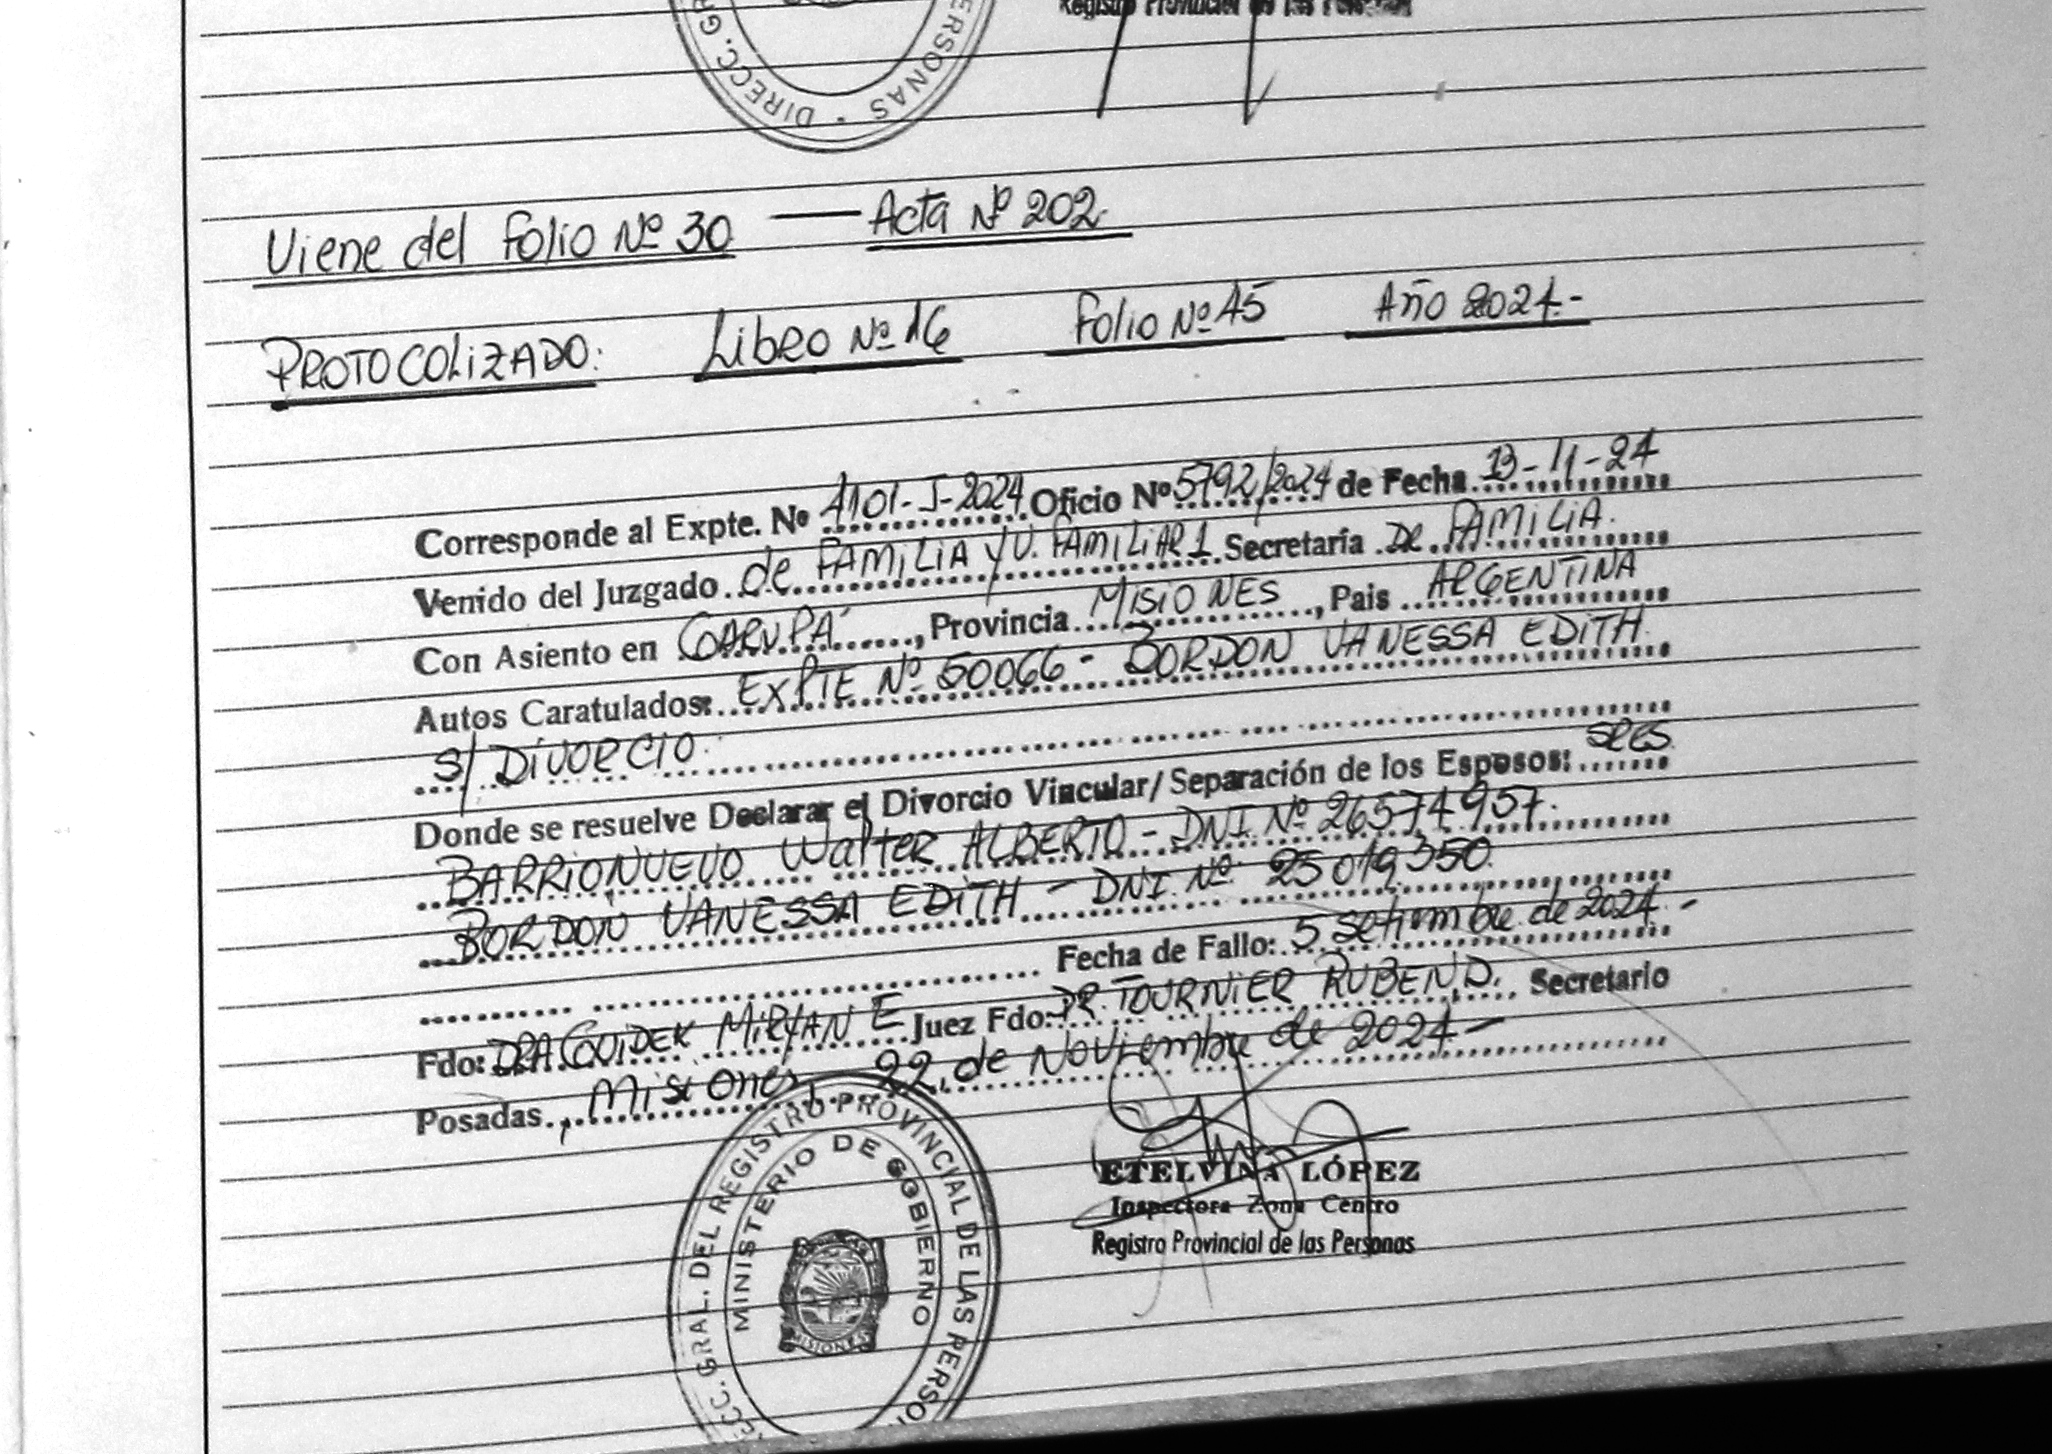 Registro Provincial de las Personas
DIRECC. GR
ERSONAS
Viene del folio Nº 30 — Acta Nº 202.
PROTOCOLIZADO: Libro Nº 16 Folio Nº 45 Año 2024.-
Corresponde al Expte. Nº 4101-I-2024 Oficio Nº 5792/2024 de Fecha 13-11-24
Venido del Juzgado de FAMILIA y V. FAMILIAR 1 Secretaría DE FAMILIA.
Con Asiento en GARUPÁ, Provincia MISIONES, Pais ARGENTINA
Autos Caratulados: EXPTE Nº 50066 - BORDON VANESSA EDITH
S/ DIVORCIO.
Donde se resuelve Declarar el Divorcio Vincular/Separación de los Esposos: SRES.
BARRIONUEVO Walter ALBERTO - DNI Nº 26574957.
BORDON VANESSA EDITH - DNI. Nº 25019350.
Fecha de Fallo: 5 setiembre de 2024.-
Fdo: DRA MIRYAN E Juez Fdo: DR. TOURNIER RUBEN D. Secretario
Posadas, Misiones, 22, de Noviembre de 2024-
ECC. GRAL. DEL REGISTRO PROVINCIAL DE LAS PERSO
MINISTERIO DE GOBIERNO
MISIONES
ETELVINA LÓPEZ
Inspectora Zona Centro
Registro Provincial de las Personas